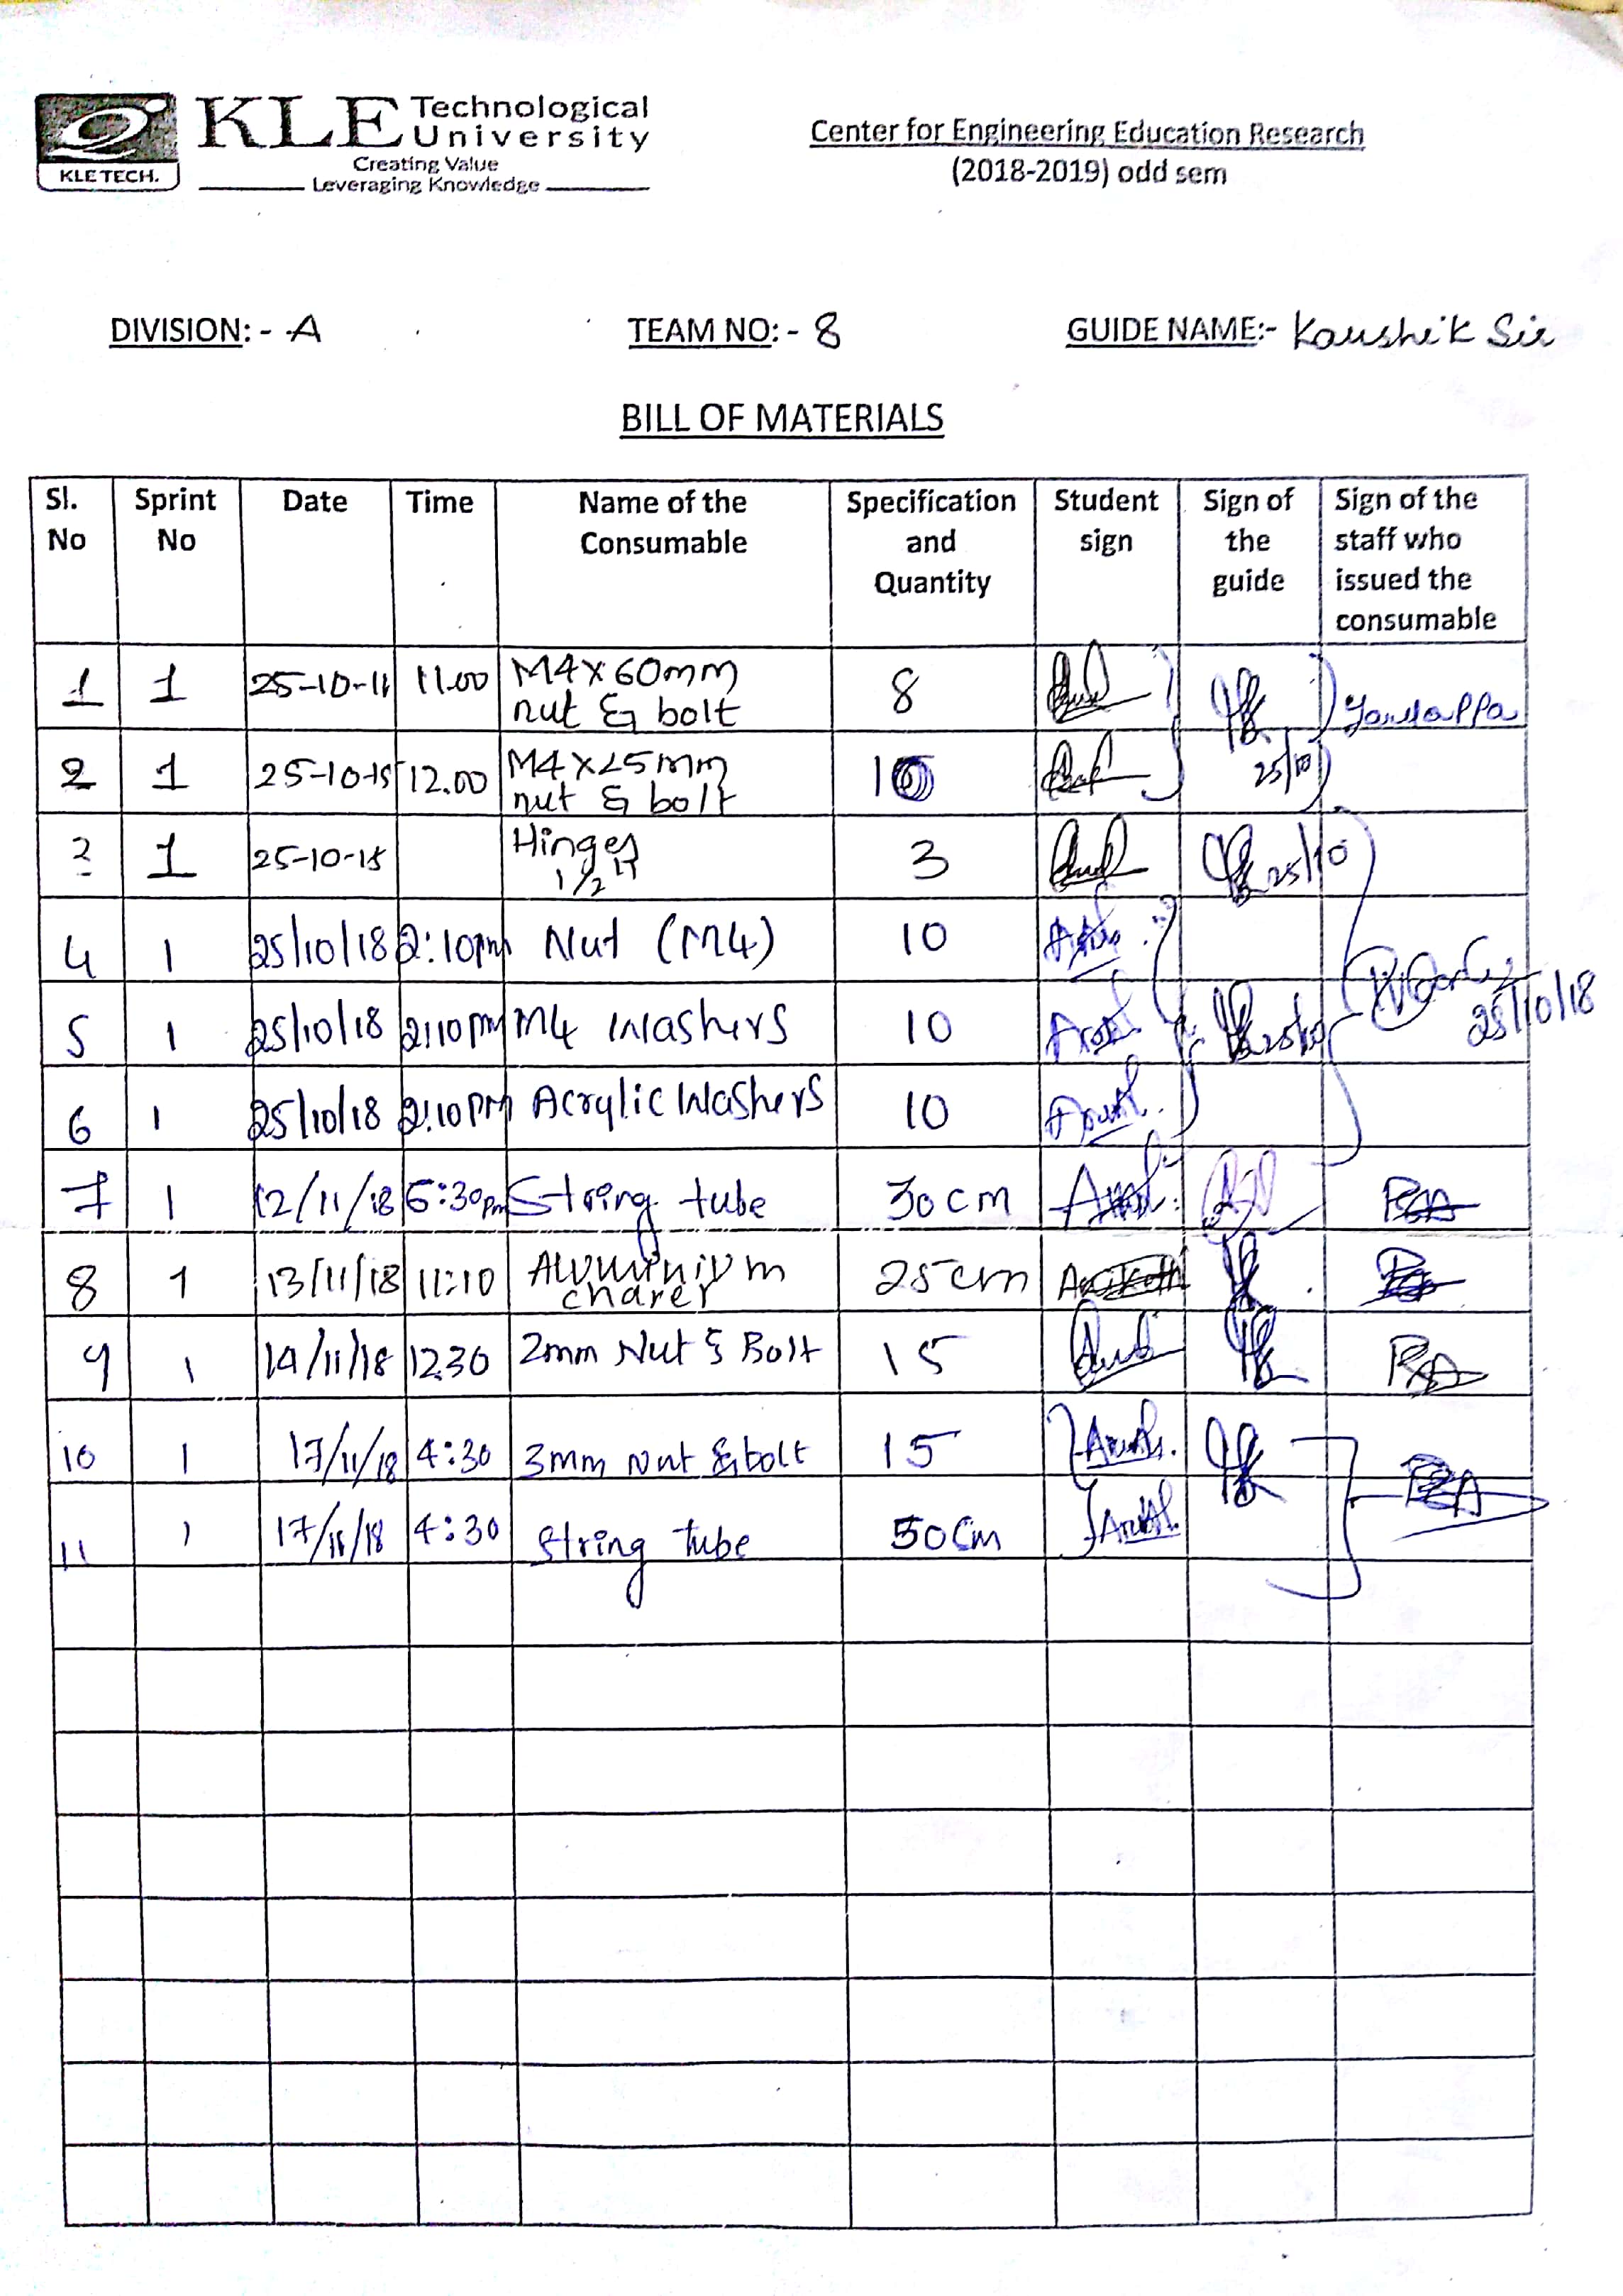 KLE Technological University
Creating Value
Leveraging Knowledge
KLE TECH.
Center for Engineering Education Research
(2018-2019) odd sem
DIVISION: - A TEAM NO: - 8 GUIDE NAME:- Kaushik Sir
BILL OF MATERIALS
Sl. No Sprint No Date Time Name of the Consumable Specification and Quantity Student sign Sign of the guide Sign of the staff who issued the consumable
1 1 25-10-18 11.00 M4x60mm nut & bolt 8
2 1 25-10-18 12.00 M4x25mm nut & bolt 10 25/10
3 1 25-10-18 Hinges 1/2" 3 25/10
4 1 25/10/18 2:10pm Nut (M4) 10
5 1 25/10/18 2:10pm M4 Washers 10 25/10 25/10/18
6 1 25/10/18 2:10PM Acrylic Washers 10
7 1 12/11/18 5:30pm String tube 30cm
8 1 13/11/18 11:10 Aluminium 25cm
9 1 14/11/18 12.30 2mm Nut & Bolt 15
10 1 17/11/18 4:30 3mm nut & bolt 15
11 1 17/11/18 4:30 String tube 50cm